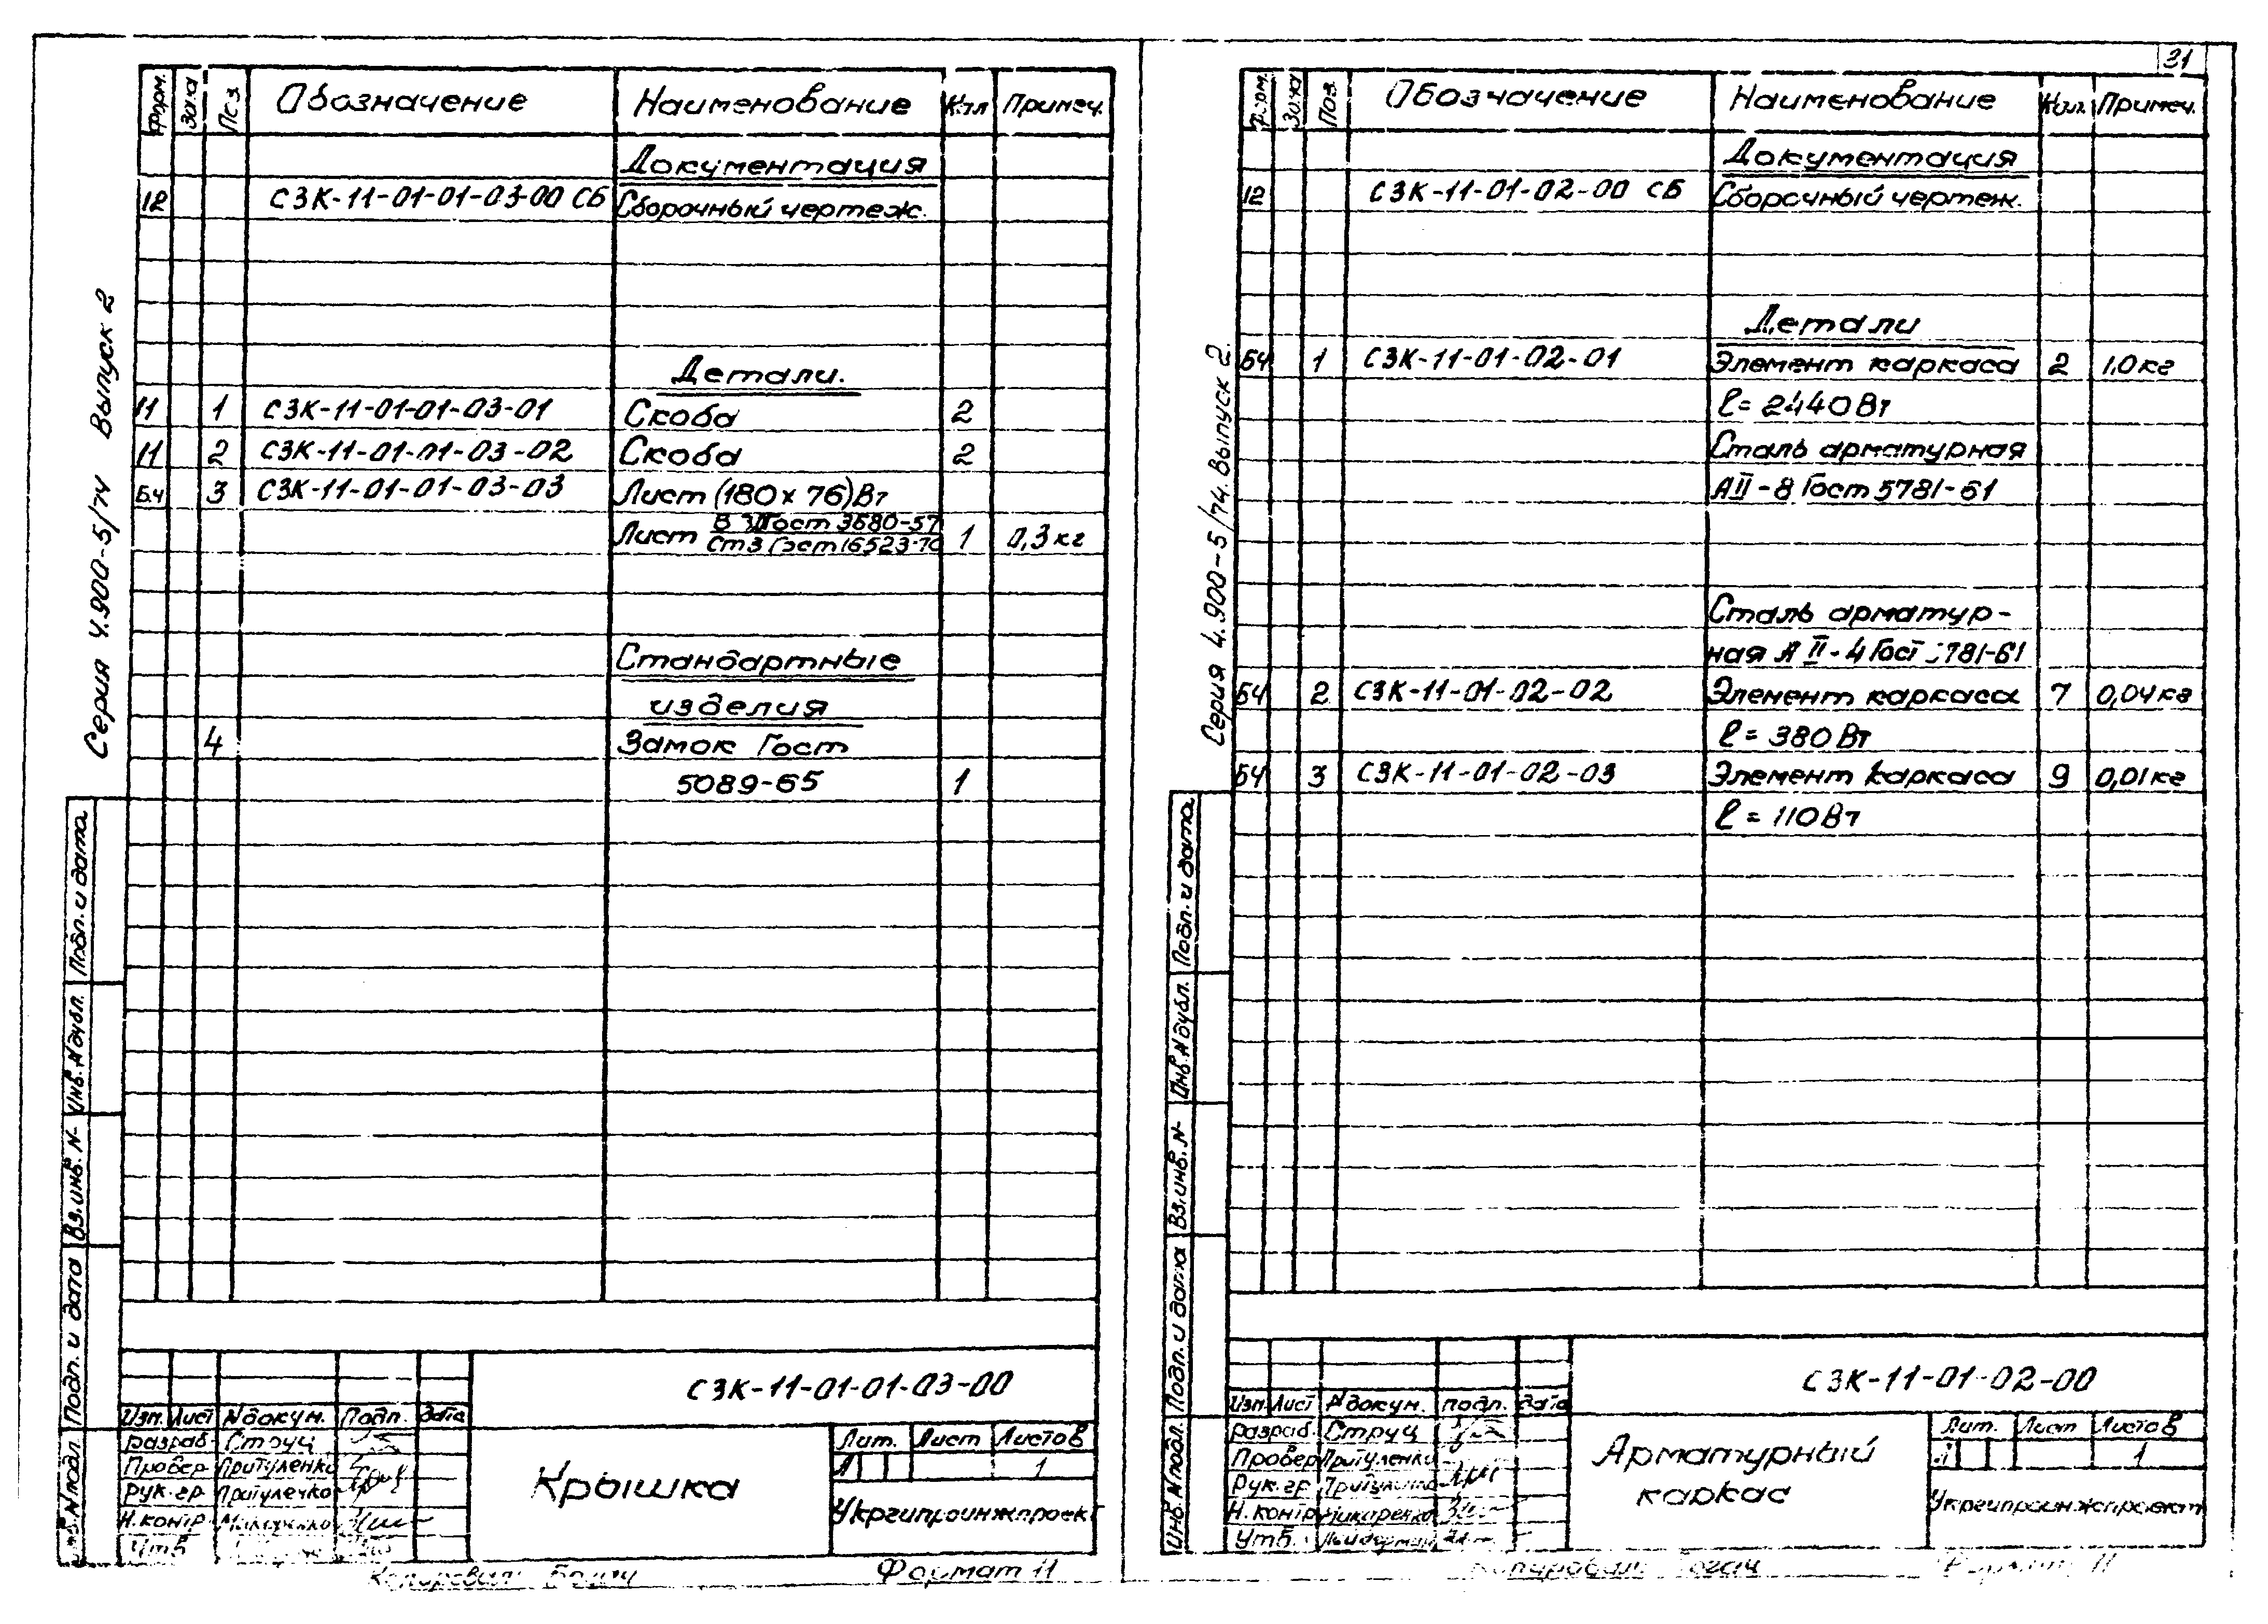 31
Серия 4.900-5/74 Выпуск 2
Форм. Зона Поз. Обозначение Наименование Кол Примеч.
Документация
12 СЗК-11-01-01-03-00 СБ Сборочный чертеж.
Детали.
11 1 СЗК-11-01-01-03-01 Скоба 2
11 2 СЗК-11-01-01-03-02 Скоба 2
БЧ 3 СЗК-11-01-01-03-03 Лист (180 х 76)Вт
Лист Гост 3680-57
Ст3 Гост 16523-70 1 0,3 кг
Стандартные
изделия
4 Замок Гост
5089-65 1
Подп. и дата
Инв. N дубл.
Вз. инв. N
Подп. и дата
Инв. N подл.
СЗК-11-01-01-03-00
Изм. Лист N докум. Подп. дата
разраб. Струц
Провер Притуленко
рук. гр. Притуленко
Н. контр
Утв
Крышка
Лит. Лист Листов
1
Укргипроинжпроект
Копировал:
Формат 11
Серия 4.900-5/74. Выпуск 2.
Форм. Зона Поз. Обозначение Наименование Кол. Примеч.
Документация
12 СЗК-11-01-02-00 СБ Сборочный чертеж.
Детали
БЧ 1 СЗК-11-01-02-01 Элемент каркаса 2 1,0 кг
ℓ = 2440 Вт
Сталь арматурная
АII-8 Гост 5781-61
Сталь арматур-
ная А II-4 Гост 5781-61
БЧ 2 СЗК-11-01-02-02 Элемент каркаса 7 0,04 кг
ℓ = 380 Вт
БЧ 3 СЗК-11-01-02-03 Элемент каркаса 9 0,01 кг
ℓ = 110 Вт
Подп. и дата
Инв. N дубл.
Вз. инв. N
Подп. и дата
Инв. N подл.
СЗК-11-01-02-00
Изм. Лист N докум. подп. дата
разраб. Струц
Провер Притуленко
Рук. гр. Притуленко
Н. контр
Утв.
Арматурный
каркас
Лит. Лист Листов
1
Укргипроинжпроект
Копировал:
Формат 11